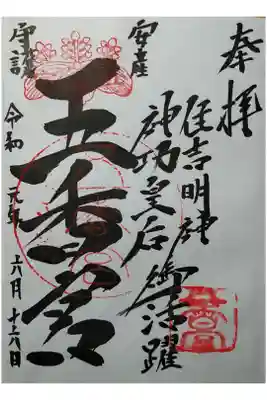 奉拝
住吉明神
神功皇后御活躍
安産
五香宮
守護
令和元年六月十六日